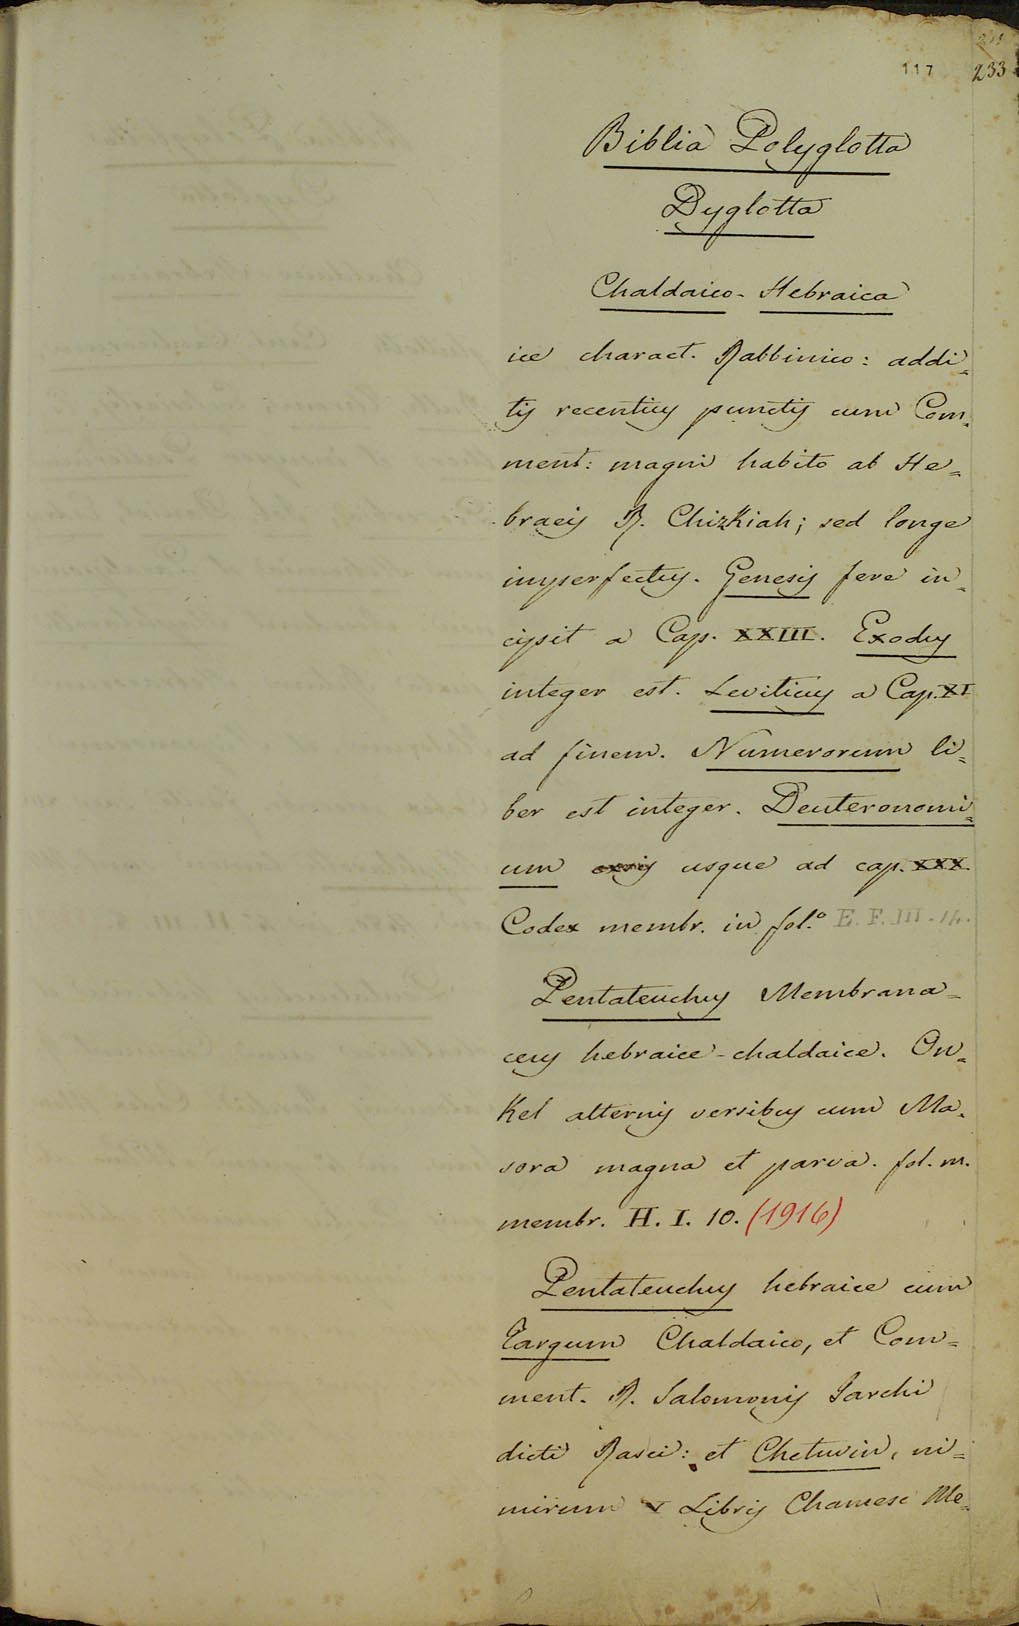 117 233
Biblia Polyglotta
Dyglotta
Chaldaico-Hebraica
ice charact. Rabbinico: addi=
tis recentius punctis cum Com=
ment: magni habito ab He=
braeis R. Chizkiah; sed longe
imperfectus. Genesis fere in=
cipit a Cap. XXIII. Exodus
integer est. Leviticus a Cap. XI
ad finem. Numerorum li=
ber est integer. Deuteronomi=
um usque ad cap. XXX.
Codex membr. in fol.° E. F. III. 14.
Pentateuchus Membrana=
ceus hebraice-chaldaice. On=
Kel alternis versibus cum Ma=
sora magna et parva. fol. m.
membr. H. I. 10. (1916)
Pentateuchus hebraice cum
Targum Chaldaico, et Com=
ment. R. Salomonis Jarchi
dicti Rasci: et Chetuvin, ni=
mirum V Libris Chamesc Me=